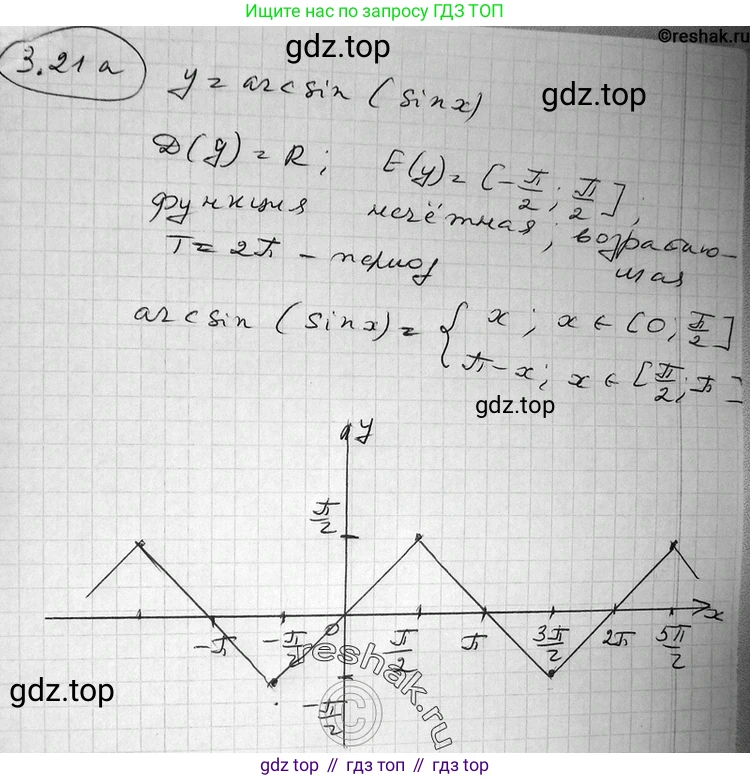 Ищите нас по запросу ГДЗ ТОП
©reshak.ru
3.21 а
gdz.top
y = arcsin (sinx)
gdz.top
D(y) = R; E(y) = [-π/2; π/2];
функция нечётная; возрастаю-
щая
T = 2π - период
arcsin (sinx) = { x; x ∈ [0; π/2]
π-x; x ∈ [π/2; π]
gdz.top
y
π/2
-π -π/2 0 π/2 π 3π/2 2π 5π/2 x
reshak.ru
©
gdz.top
-π/2
gdz top // гдз топ // gdz top